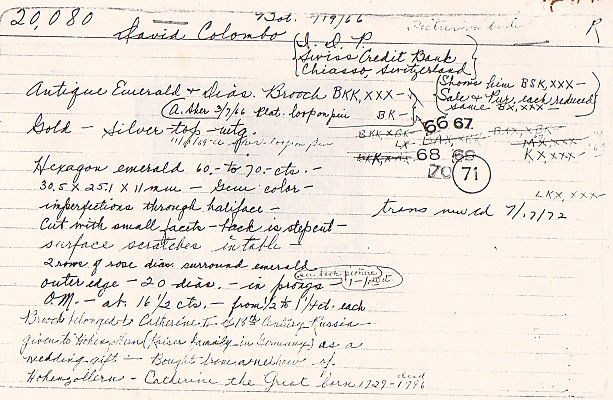 20,080 7/19/66 R
David Colombo I.D.P.
Swiss Credit Bank
Chiasso, Switzerland
Antique Emerald & Dias. Brooch BKK,XXX- Shows him BSK,XXX-
Sale & Pur. each reduced
same BX,XXX-
3/7/66 Plat. loop on pin BK-
Gold - Silver top - mtg. 66 67
LX-
68 69 KX,XXX-
70 71
Hexagon emerald 60.- to 70.- cts. -
LKX,XXX-
30.5 X 25.1 X 11 mm - Gem color -
imperfections through half face - trans new cd 7/17/72
Cut with small facets - back is step cut -
surface scratches in table -
2 rows of rose dias. surround emerald
outer edge - 20 dias. - in prongs -
O.M. - at. 16 1/2 cts. - from 1/2 to 1 1/4 ct. each
Brooch belonged to Catherine II of 18th Century Russia -
given to Hohenzollern (Kaiser family in Germany) as a
wedding gift - Bought from a nephew of
Hohenzollern - Catherine the Great born 1729 - died 1796